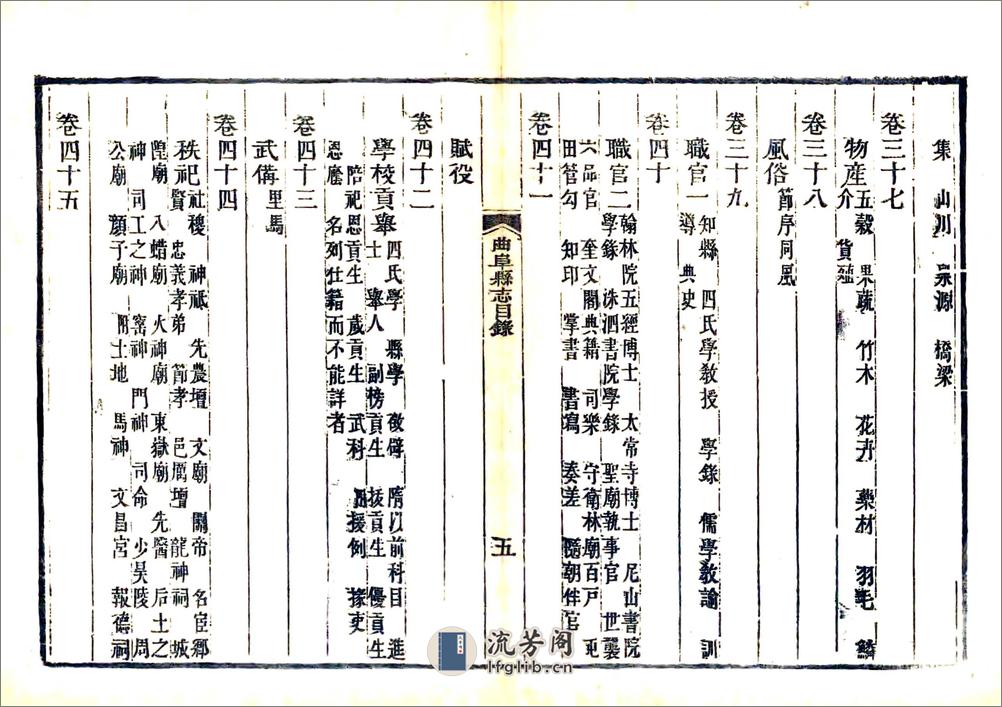 集　山川　泉源　橋梁
卷三十七
物產　五穀　果蔬　竹木　花卉　藥材　羽毛　鱗
介　貨殖
卷三十八
風俗　節序同風
卷三十九
職官一　知縣　四氏學教授　學錄　儒學教諭　訓
導　典史
卷四十
職官二　翰林院五經博士　太常寺博士　尼山書院
學錄　洙泗書院學錄　聖廟執事官　世襲
六品官　奎文閣典籍　司樂　守衛林廟百戶　屯
田管勾　知印　掌書　書寫　奏差　隨朝伴官
卷四十一
賦役
卷四十二
學校貢舉　四氏學　縣學　徵辟　隋以前科目　進
士　舉人　副榜貢生　拔貢生　優貢生
陪祀恩貢生　歲貢生　武科　援例　掾吏
恩廕　名列仕籍而不能詳者
卷四十三
武備　里馬
卷四十四
秩祀　社稷　神祇　先農壇　文廟　關帝　名宦鄉
賢　忠義孝弟　節孝　邑厲壇　龍神祠　城
隍廟　八蜡廟　火神廟　東嶽廟　先醫　后土之
神　司工之神　窰神　門神　司命　少昊陵　周
公廟　顏子廟　土地　馬神　文昌宮　報德祠
卷四十五
曲阜縣志目錄
五
流芳阁
lfglib.cn